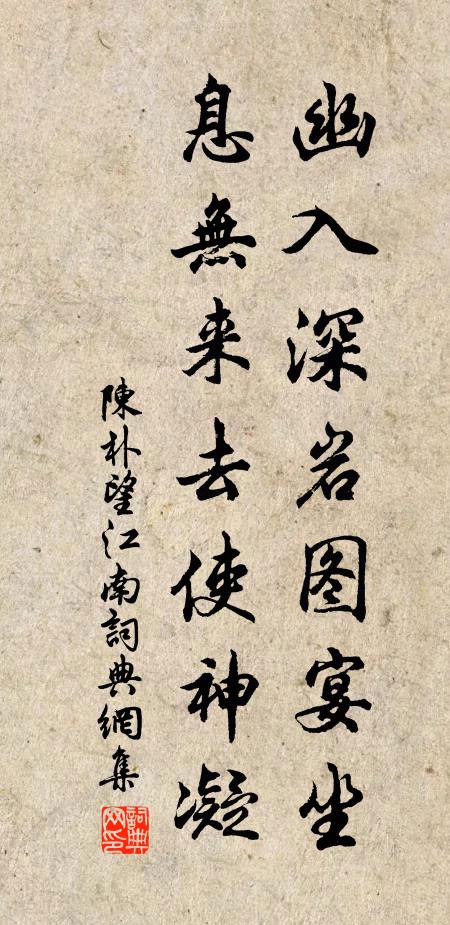 幽入深岩图宴坐
息無来去使神凝
陳朴望江南詞典網集
詞典网印